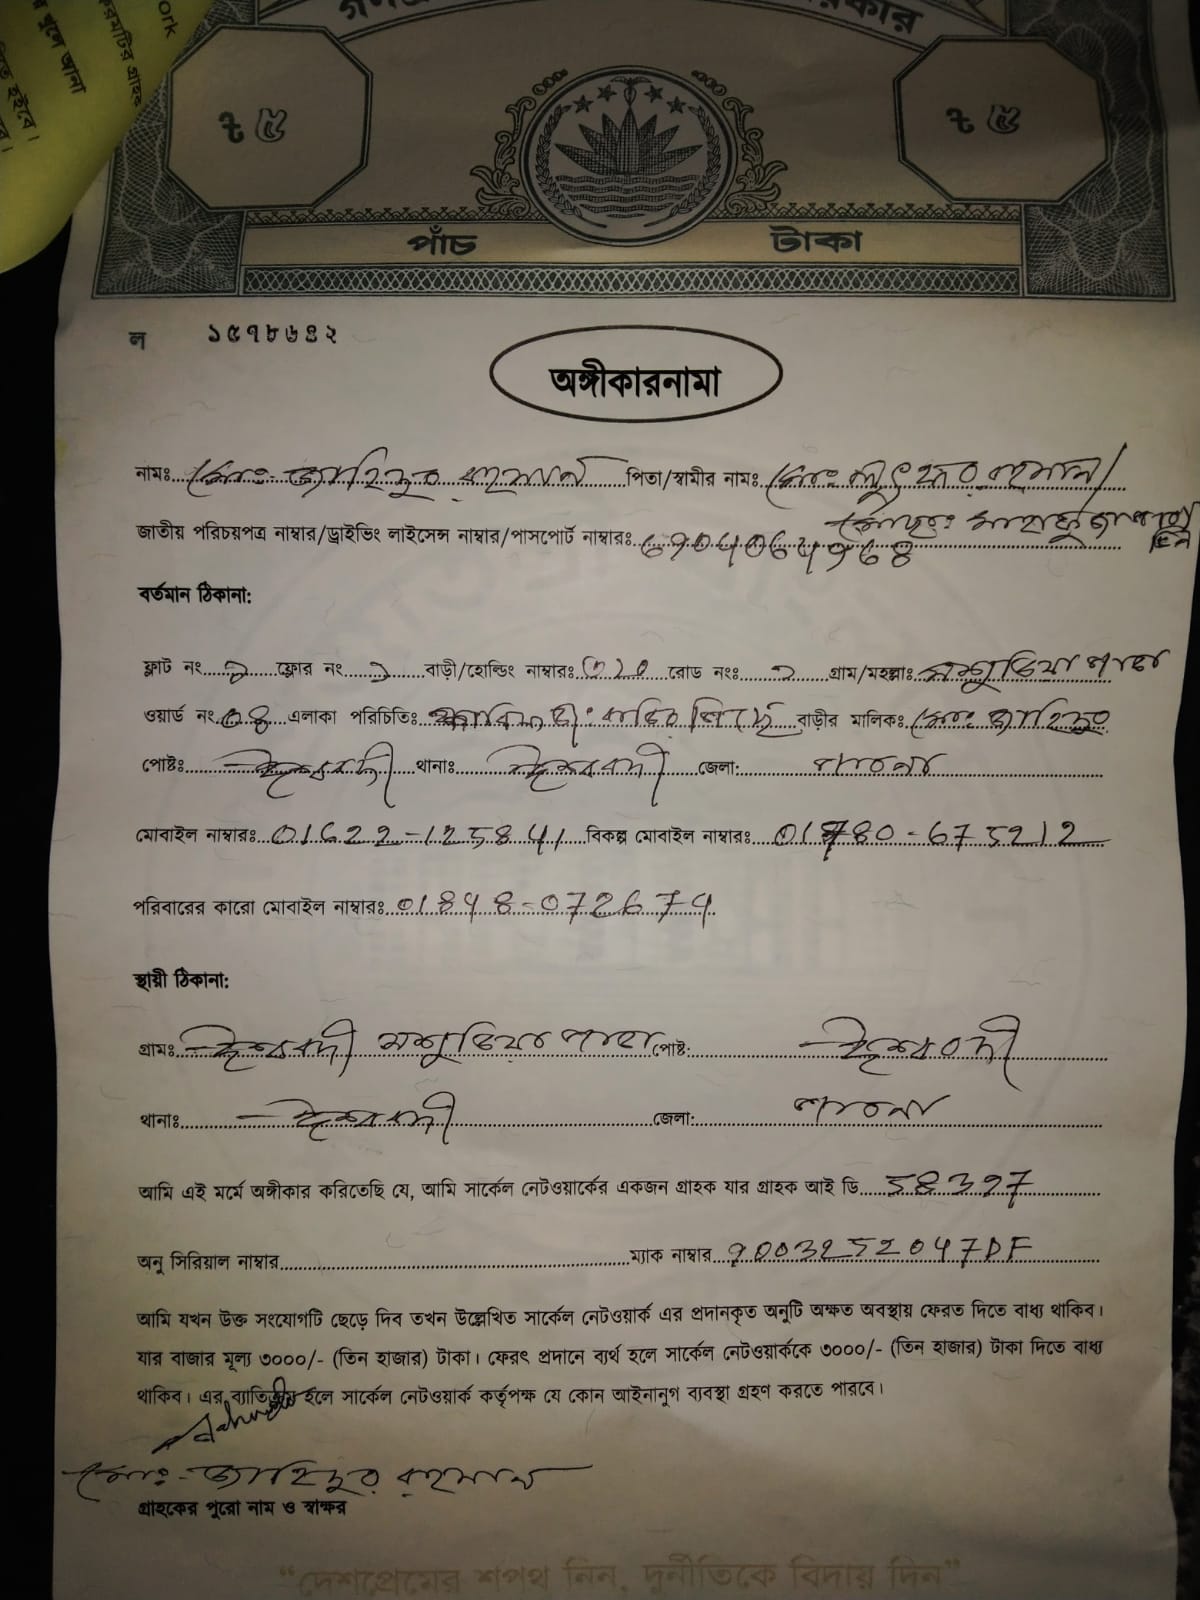 ৳ ৫
৳ ৫
পাঁচ টাকা
ল ১৫৭৮৬৪২
অঙ্গীকারনামা
নামঃ মোঃ জাহিদুর রহমান পিতা/স্বামীর নামঃ মোঃ লুৎফর রহমান
জাতীয় পরিচয়পত্র নাম্বার/ড্রাইভিং লাইসেন্স নাম্বার/পাসপোর্ট নাম্বারঃ
বর্তমান ঠিকানা:
ফ্লাট নং ২ ফ্লোর নং ১ বাড়ী/হোল্ডিং নাম্বারঃ রোড নংঃ ২ গ্রাম/মহল্লাঃ মশুড়িয়া পাড়া
ওয়ার্ড নং ০৪ এলাকা পরিচিতিঃ বাড়ীর মালিকঃ মোঃ জাহিদুর
পোষ্টঃ ঈশ্বরদী থানাঃ ঈশ্বরদী জেলা: পাবনা
মোবাইল নাম্বারঃ 01622-125841 বিকল্প মোবাইল নাম্বারঃ
পরিবারের কারো মোবাইল নাম্বারঃ
স্থায়ী ঠিকানা:
গ্রামঃ ঈশ্বরদী মশুড়িয়া পাড়া পোষ্ট: ঈশ্বরদী
থানাঃ ঈশ্বরদী জেলা: পাবনা
আমি এই মর্মে অঙ্গীকার করিতেছি যে, আমি সার্কেল নেটওয়ার্কের একজন গ্রাহক যার গ্রাহক আই ডি 58397
অনু সিরিয়াল নাম্বার ম্যাক নাম্বার
আমি যখন উক্ত সংযোগটি ছেড়ে দিব তখন উল্লেখিত সার্কেল নেটওয়ার্ক এর প্রদানকৃত অনুটি অক্ষত অবস্থায় ফেরত দিতে বাধ্য থাকিব।
যার বাজার মূল্য ৩০০০/- (তিন হাজার) টাকা। ফেরৎ প্রদানে ব্যর্থ হলে সার্কেল নেটওয়ার্ককে ৩০০০/- (তিন হাজার) টাকা দিতে বাধ্য
থাকিব। এর ব্যতিক্রম হলে সার্কেল নেটওয়ার্ক কর্তৃপক্ষ যে কোন আইনানুগ ব্যবস্থা গ্রহণ করতে পারবে।
মোঃ জাহিদুর রহমান
গ্রাহকের পুরো নাম ও স্বাক্ষর
“দেশপ্রেমের শপথ নিন, দুর্নীতিকে বিদায় দিন”